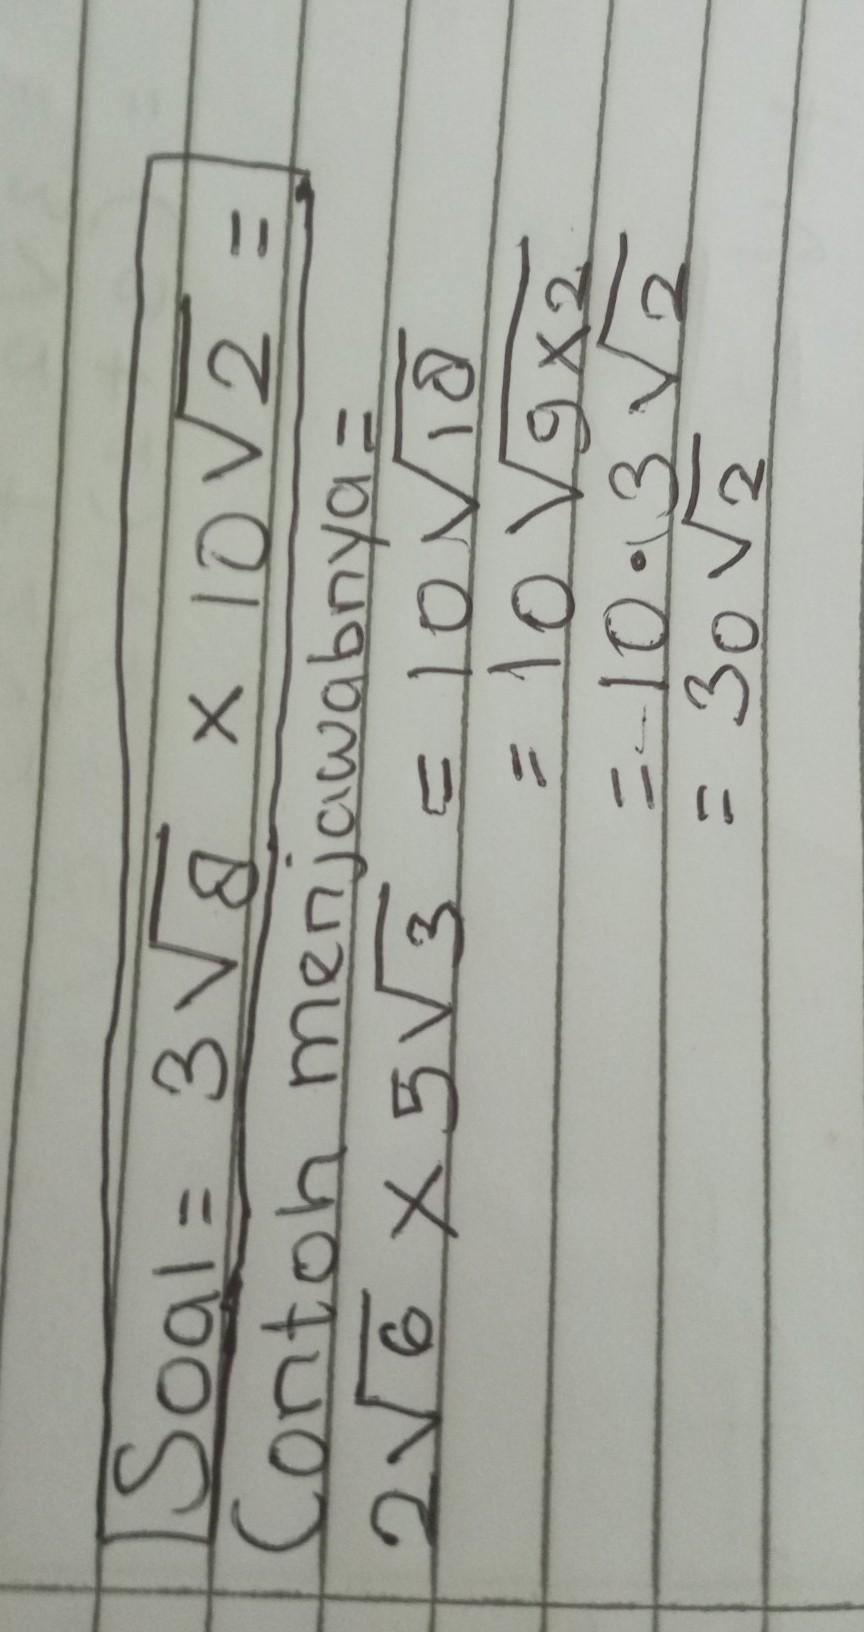 Soal = 3√8 × 10√2 =
Contoh menjawabnya =
2√6 × 5√3 = 10√18
= 10√9×2
= 10·3√2
= 30√2